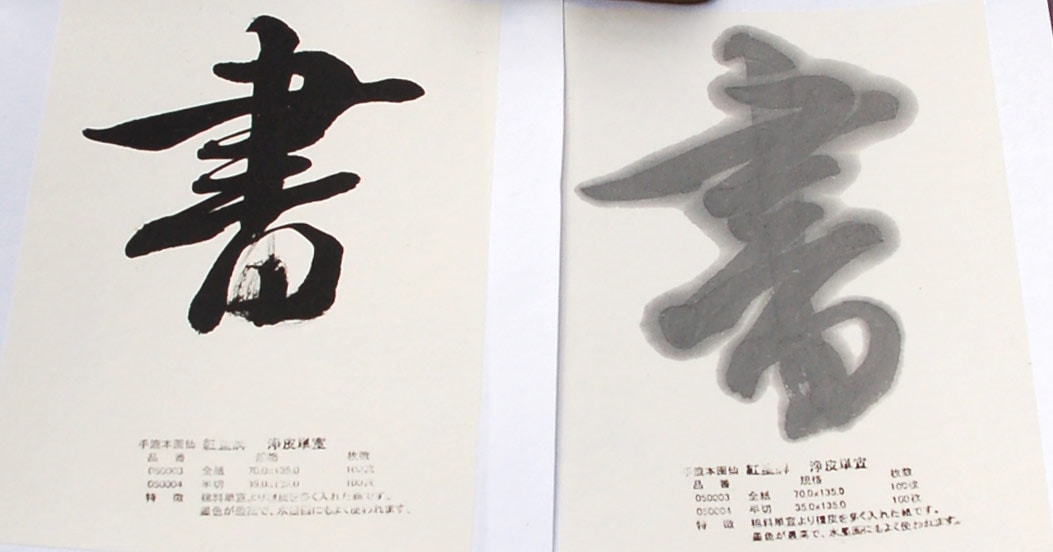 書
手漉本画仙 紅星牌 浄皮単宣
品 番 規格 枚数
050003 全紙 70.0×135.0 100枚
050004 半切 35.0×135.0 100枚
特 徴 綿料単宣より檀皮を多く入れた紙です。
墨色が最高で、水墨画にもよく使われます。
書
手漉本画仙 紅星牌 浄皮単宣
品 番 規格 枚数
050003 全紙 70.0×135.0 100枚
050004 半切 35.0×135.0 100枚
特 徴 綿料単宣より檀皮を多く入れた紙です。
墨色が最高で、水墨画にもよく使われます。